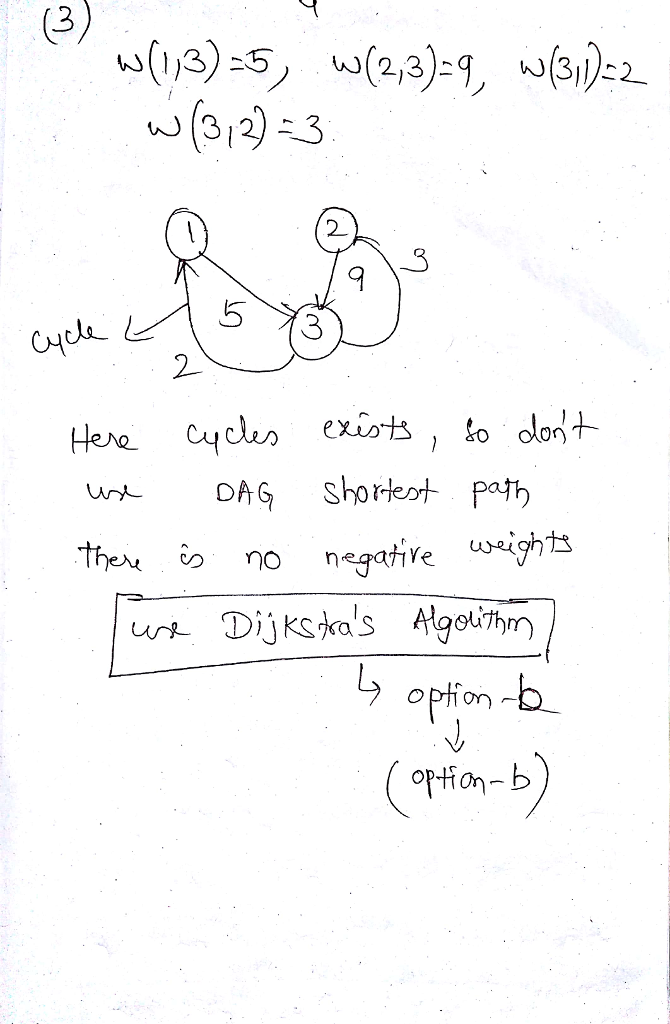 (3)
w(1,3)=5, w(2,3)=9, w(3,1)=2
w(3,2)=3
1 2
9 3
5 3
cycle
2
Here cycles exists, so don't
use DAG shortest path
there is no negative weights
use Dijkstra's Algorithm
↳ option-b
↓
(option-b)